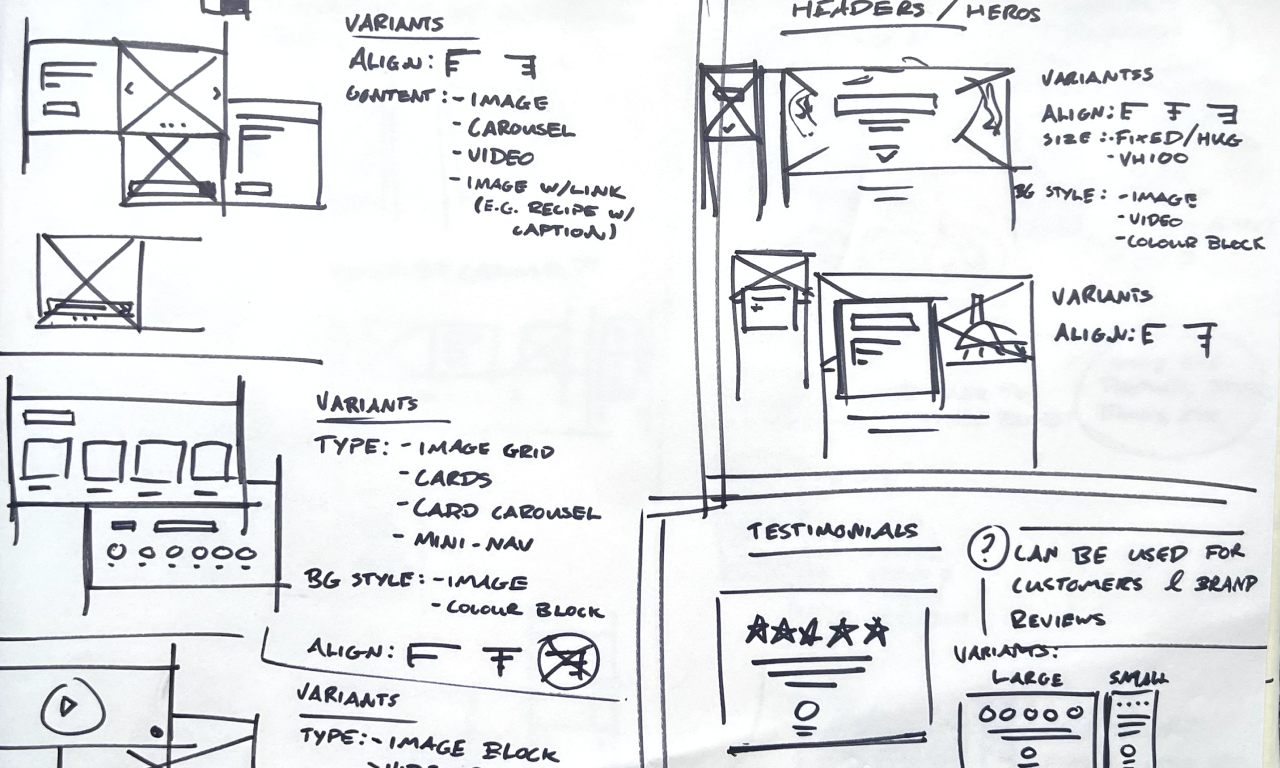 VARIANTS
ALIGN:
CONTENT: - IMAGE
- CAROUSEL
- VIDEO
- IMAGE W/LINK
(E.G. RECIPE W/
CAPTION)
VARIANTS
TYPE: - IMAGE GRID
- CARDS
- CARD CAROUSEL
- MINI-NAV
BG STYLE: - IMAGE
- COLOUR BLOCK
ALIGN:
VARIANTS
TYPE: - IMAGE BLOCK
HEADERS / HEROS
VARIANTSS
ALIGN:
SIZE: - FIXED/HUG
- VH100
BG STYLE: - IMAGE
- VIDEO
- COLOUR BLOCK
VARIANTS
ALIGN:
TESTIMONIALS
? CAN BE USED FOR
CUSTOMERS & BRAND
REVIEWS
VARIANTS:
LARGE SMALL